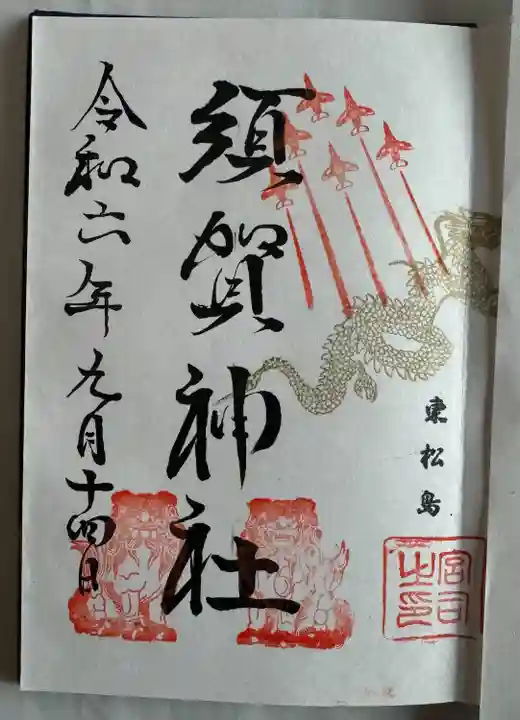 東松島
宮司
之印
須賀神社
令和六年九月十四日